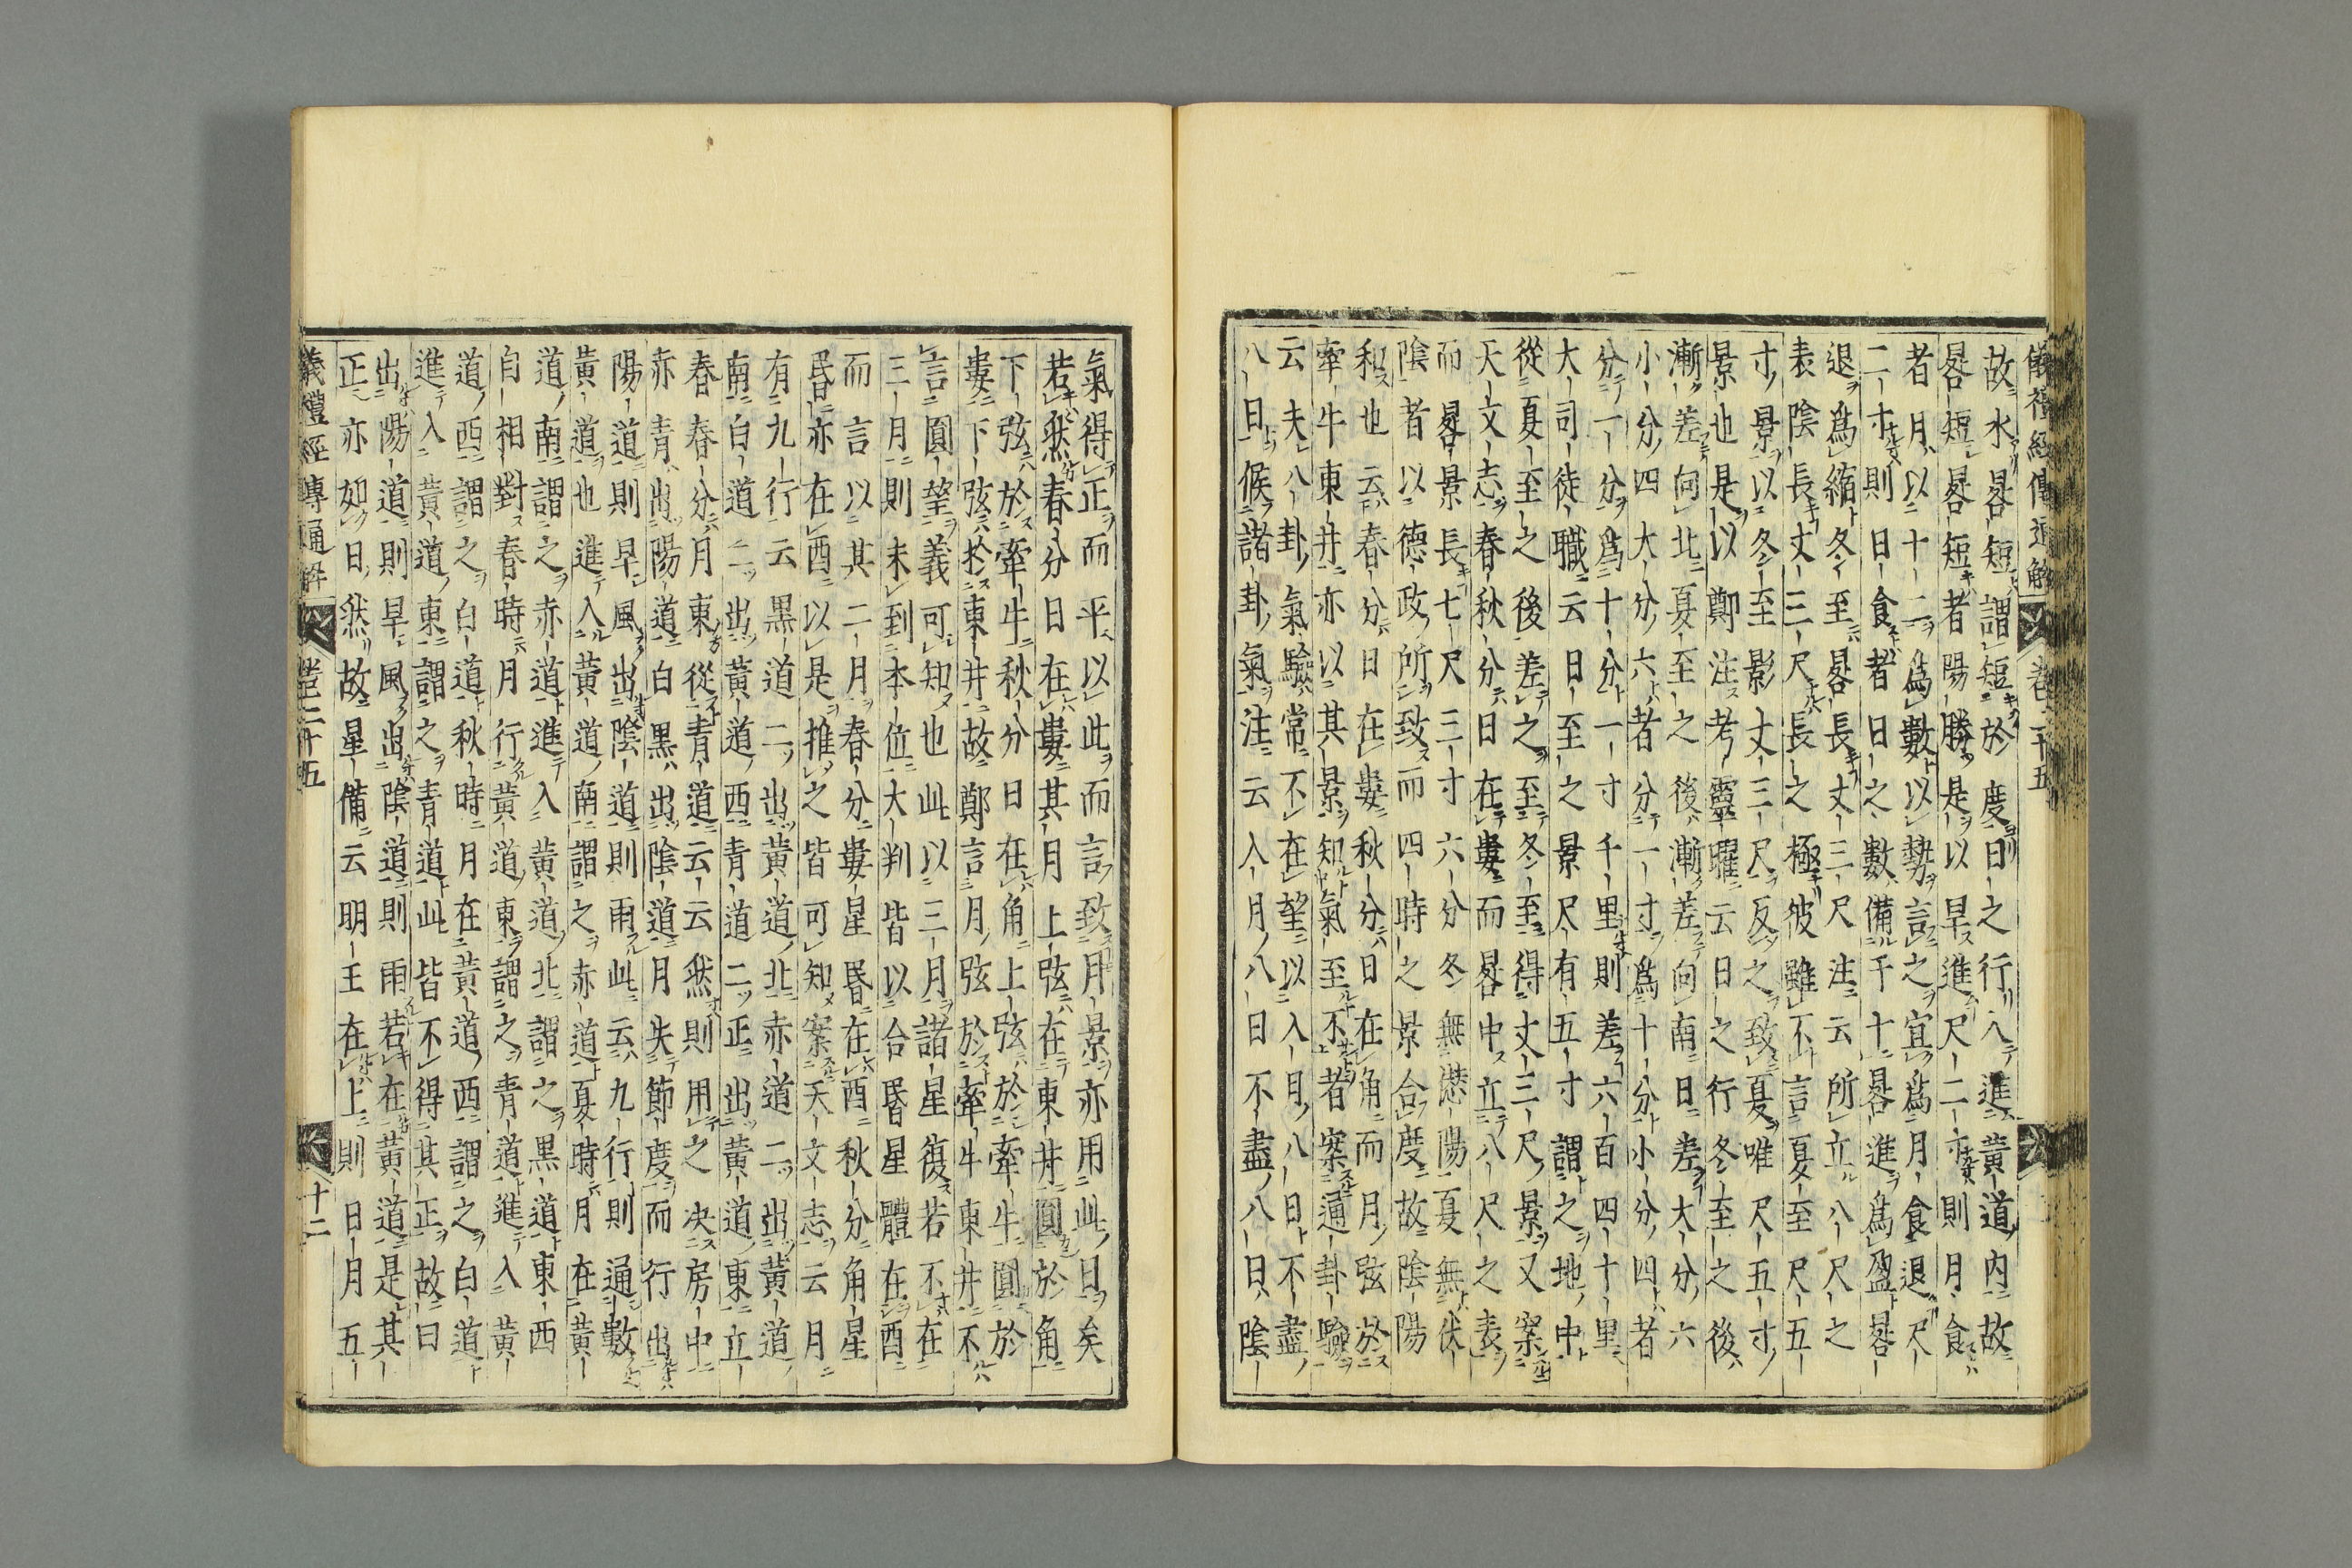 儀禮經傳通解 卷二十五
故水晷短謂短於度日之行入進黃道内故
晷短晷短者陽勝是以旱進尺二寸則月食
者月以十二爲數以勢言之宜爲月食退尺
二寸則日食者日之數備于十晷進爲盈晷
退爲縮冬至晷長丈三尺注云所立八尺之
表陰長丈三尺長之極彼雖不言夏至尺五
寸景以冬至影丈三尺反之致夏唯尺五寸
景也是以鄭注考靈曜云日之行冬至之後
漸差向北夏至之後漸差向南日差大分六
小分四大分六者分一寸爲十分小分四者
分一分爲十分一寸千里則差六百四十里
大司徒職云日至之景尺有五寸謂之地中
從夏至之後差之至冬至得丈三尺景又案
天文志春秋分日在婁而晷中立八尺之表
而晷景長七尺三寸六分冬無愆陽夏無伏
陰者以德政所致而四時之景合度故陰陽
和也云春分日在婁秋分日在角而月弦於
牽牛東井亦以其景知氣至不者案通卦驗
云夫八卦氣驗常不在望以入月八日不盡
八日候諸卦氣注云入月八日不盡八日陰
氣得正而平以此而言致月景亦用此日矣
若然春分日在婁其月上弦在東井圓於角
下弦於牽牛秋分日在角上弦於牽牛圓於
婁下弦於東井故鄭言月弦於牽牛東井不
言圓望義可知也此以三月諸星復若不在
三月則未到本位大判皆以合昏星體在酉
而言以其二月春分婁星昏在酉秋分角星
昏亦在酉以是推之皆可知案天文志云月
有九行云黑道二出黃道北赤道二出黃道
南白道二出黃道西青道二正出黃道東立
春春分月東從青道云云然則用之決房中
赤青出陽道白黑出陰道月失節度而行出
陽道則旱風出陰道則雨此云九行則通數
黃道也進入黃道南謂之赤道夏時月在黃
道南謂之赤道進入黃道北謂之黑道東西
自相對春時月行黃道東謂之青道進入黃
道西謂之白道秋時月在黃道西謂之白道
進入黃道東謂之青道此皆不得其正故曰
出陽道則旱風出陰道則雨若在黃道是其
正亦如日然故星備云明王在上則日月五
儀禮經傳通解 卷二十五 十二